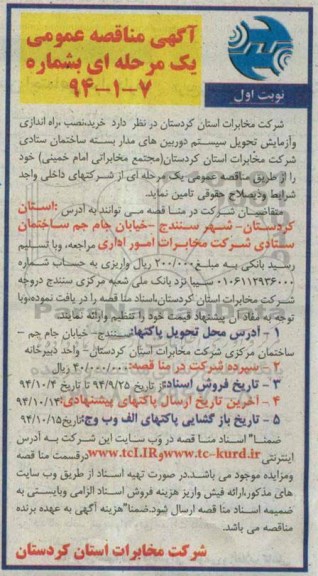 آگهی مناقصه عمومی
یک مرحله ای بشماره
۹۴-۱-۷
نوبت اول
شرکت مخابرات استان کردستان در نظر دارد خرید،نصب ،راه اندازی
وآزمایش تحویل سیستم دوربین های مدار بسته ساختمان ستادی
شرکت مخابرات استان کردستان(مجتمع مخابراتی امام خمینی) خود
را از طریق مناقصه عمومی یک مرحله ای از شرکتهای داخلی واجد
شرایط وذیصلاح حقوقی تامین نماید.
متقاضیان شرکت در مناقصه می توانند به ادرس :استان
کردستان- شهر سنندج -خیابان جام جم ساختمان
ستادی شرکت مخابرات امور اداری مراجعه، وبا تسلیم
رسید بانکی به مبلغ ۲۰۰/۰۰۰ ریال واریزی به حساب شماره
۰۱۰۶۱۱۲۹۳۶۰۰۰ سیبا نزد بانک ملی شعبه مرکزی سنندج دروجه
شرکت مخابرات استان کردستان،اسناد مناقصه را در یافت نموده،وبا
توجه به مفاد آن پیشنهاد قیمت خود را تنظیم وارائه نمایند.
۱ - آدرس محل تحویل پاکتها: سنندج- خیابان جام جم -
ساختمان مرکزی شرکت مخابرات استان کردستان- واحد دبیرخانه
۲ - سپرده شرکت در مناقصه: ۳۰/۰۰۰/۰۰۰ ریال.
۳ - تاریخ فروش اسناد: از تاریخ ۹۴/۹/۲۵ تا تاریخ ۹۴/۱۰/۴
۴ - آخرین تاریخ ارسال پاکتهای پیشنهادی: ۹۴/۱۰/۱۴
۵ - تاریخ باز گشایی پاکتهای الف وب وج: تاریخ ۹۴/۱۰/۱۵
ضمنا" اسناد مناقصه در وب سایت این شرکت به آدرس
اینترنتی www.tc-kurd.ir و www.tcI.IR درقسمت مناقصه
ومزایده موجود می باشد.در صورت تهیه اسناد از طریق وب سایت
های مذکور،ارائه فیش واریز هزینه فروش اسناد الزامی وبایستی به
ضمیمه اسناد مناقصه ارسال شود.ضمنا"هزینه آگهی به عهده برنده
مناقصه می باشد.
شرکت مخابرات استان کردستان